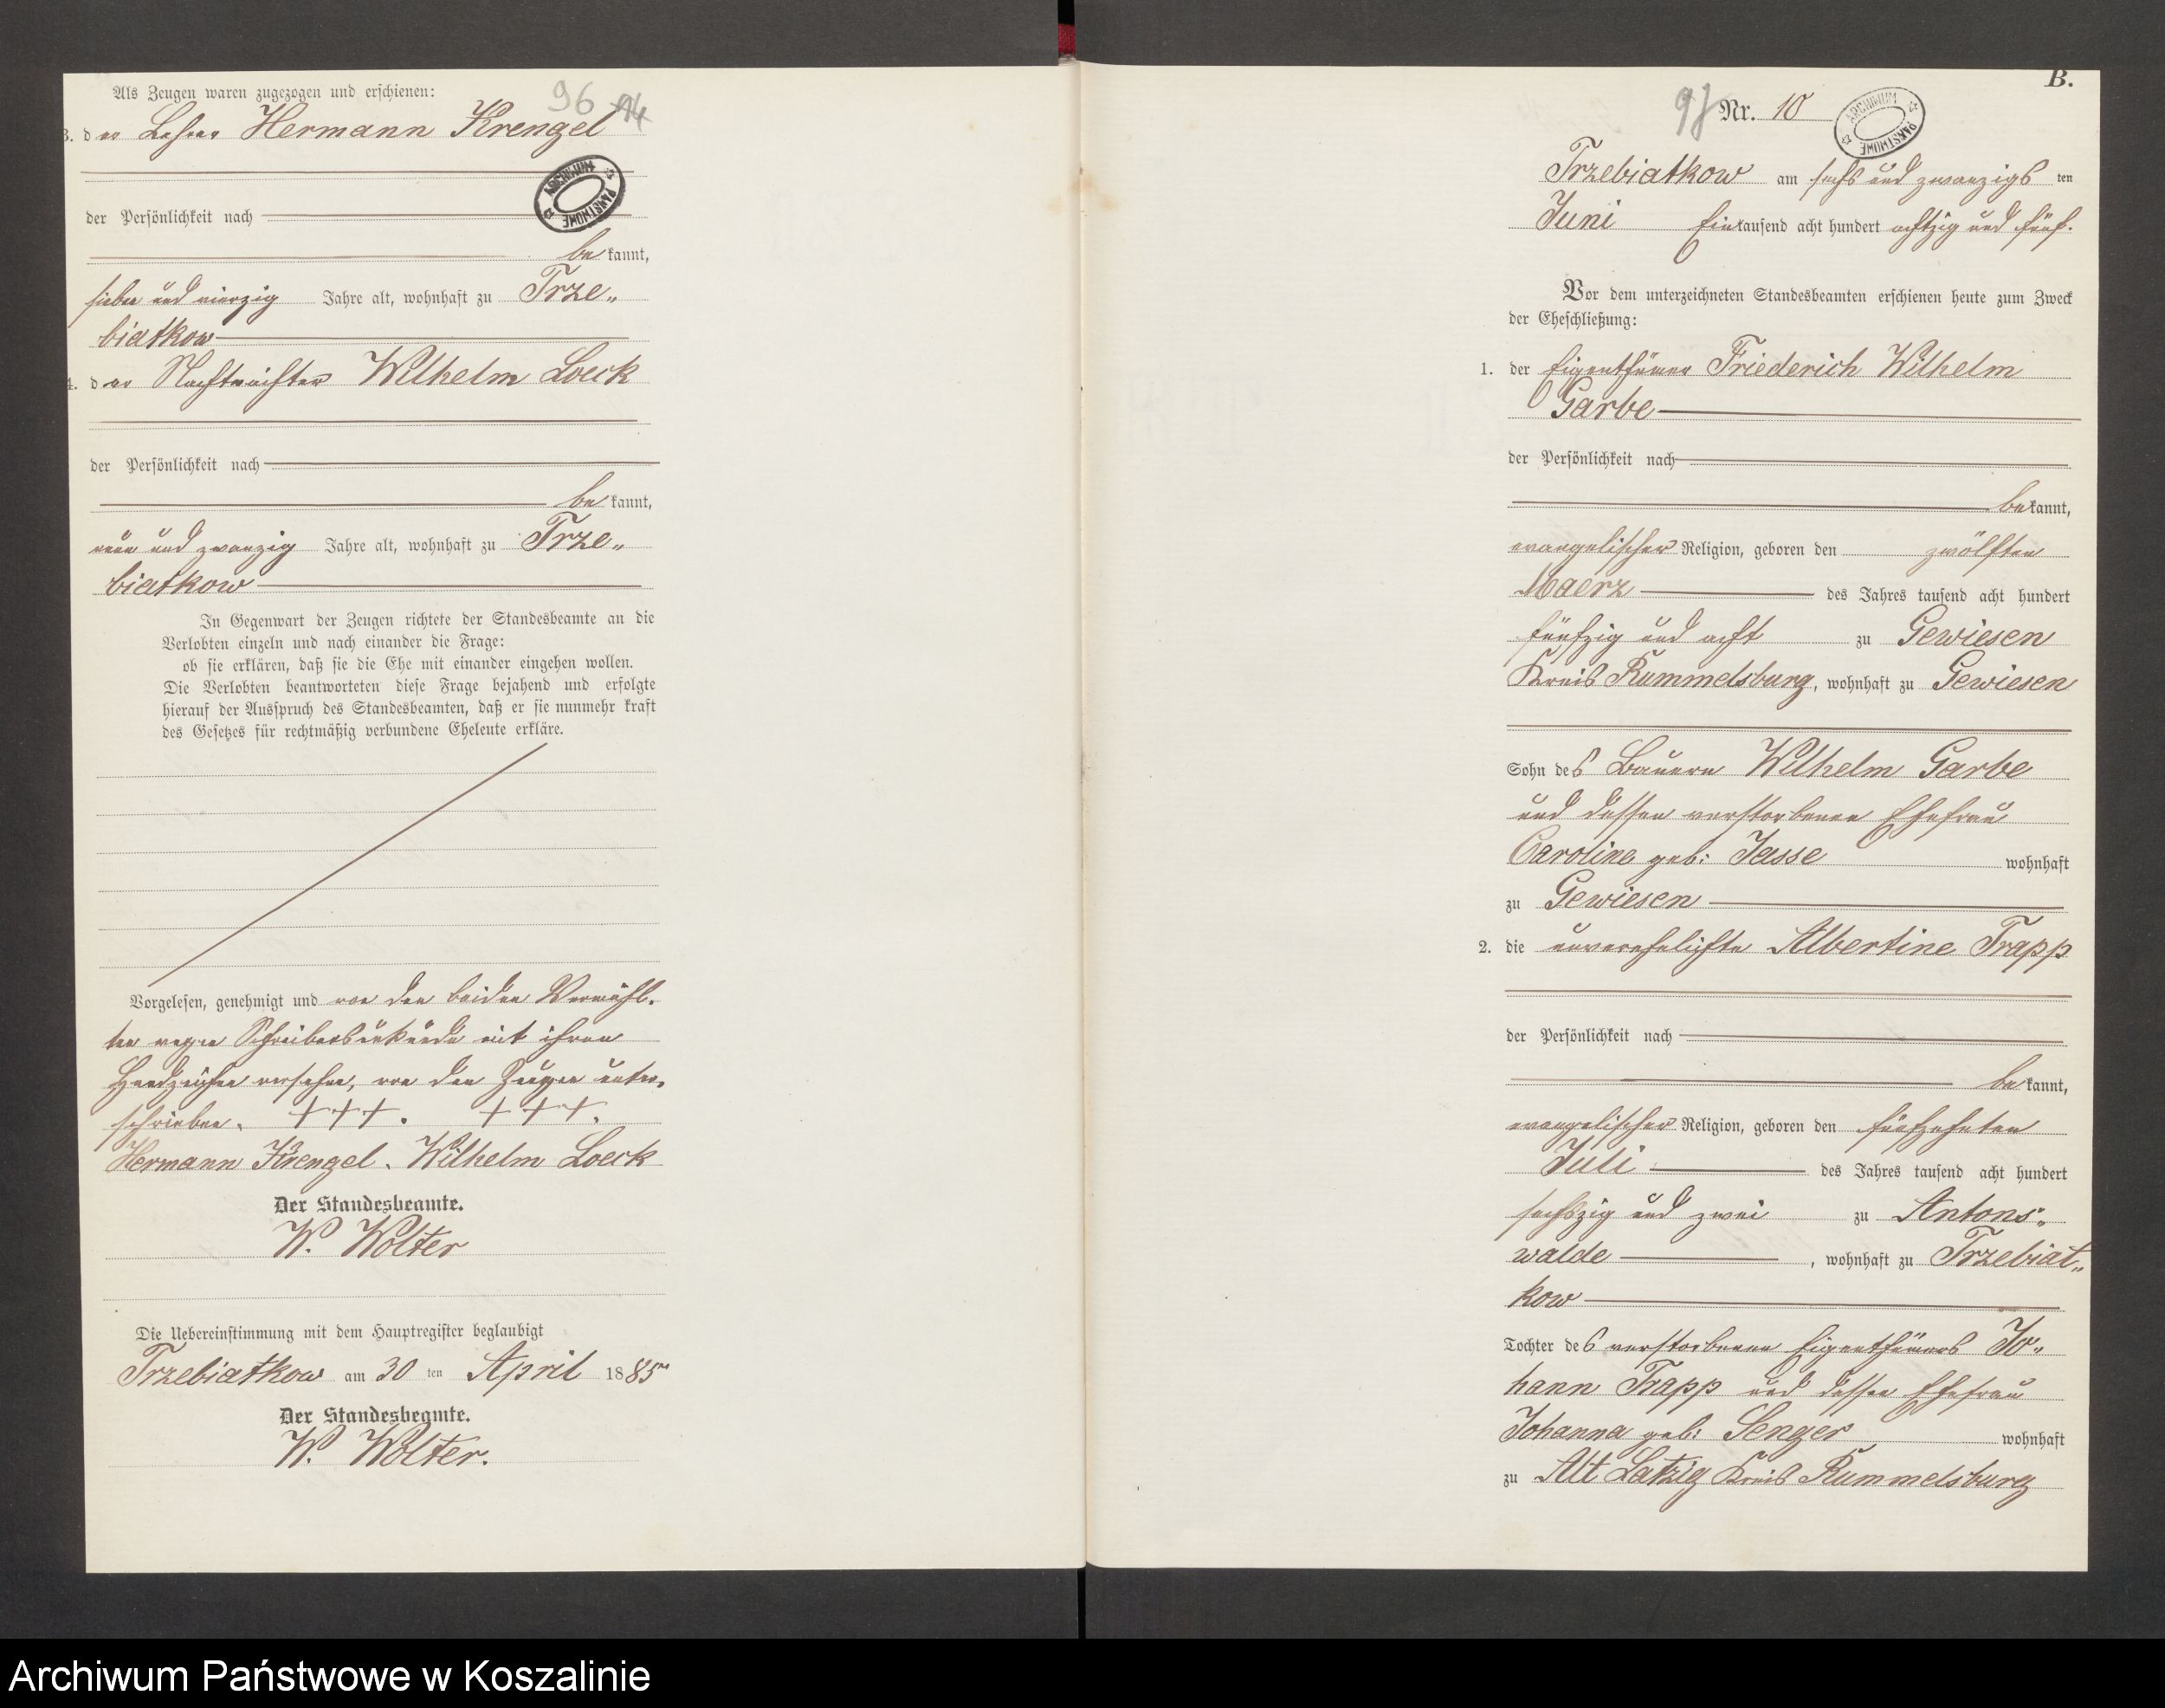 96 94
Als Zeugen waren zugezogen und erschienen:
3. der Lehrer Hermann Krengel
ARCHIWUM PAŃSTWOWE
der Persönlichkeit nach
bekannt,
sieben und vierzig Jahre alt, wohnhaft zu Trze„
biatkow
4. der Nachtwächter Wilhelm Loeck
der Persönlichkeit nach
bekannt,
neun und zwanzig Jahre alt, wohnhaft zu Trze„
biatkow
In Gegenwart der Zeugen richtete der Standesbeamte an die
Verlobten einzeln und nach einander die Frage:
ob sie erklären, daß sie die Ehe mit einander eingehen wollen.
Die Verlobten beantworteten diese Frage bejahend und erfolgte
hierauf der Ausspruch des Standesbeamten, daß er sie nunmehr kraft
des Gesetzes für rechtmäßig verbundene Eheleute erkläre.
Vorgelesen, genehmigt und von den beiden Vermähl„
ten wegen Schreibensunkunde mit ihren
Handzeichen versehen, von den Zeugen unter„
schrieben. +++. +++.
Hermann Krengel. Wilhelm Loeck
Der Standesbeamte.
W. Wolter
Die Uebereinstimmung mit dem Hauptregister beglaubigt
Trzebiatkow am 30 ten April 1885
Der Standesbeamte.
W. Wolter.
B.
97 Nr. 10
ARCHIWUM PAŃSTWOWE
Trzebiatkow am sechs und zwanzigsten
Juni Eintausend acht hundert achtzig und fünf.
Vor dem unterzeichneten Standesbeamten erschienen heute zum Zweck
der Eheschließung:
1. der Eigenthümer Friederich Wilhelm
Garbe
der Persönlichkeit nach
bekannt,
evangelischer Religion, geboren den zwölften
Maerz des Jahres tausend acht hundert
fünfzig und acht zu Gewiesen
Kreis Rummelsburg, wohnhaft zu Gewiesen
Sohn des Bauern Wilhelm Garbe
und dessen verstorbenen Ehefrau
Caroline geb: Jasse wohnhaft
zu Gewiesen
2. die unverehelichte Albertine Trapp
der Persönlichkeit nach
bekannt,
evangelischer Religion, geboren den fünfzehnten
Juli des Jahres tausend acht hundert
sechszig und zwei zu Antons„
walde, wohnhaft zu Trzebiat„
kow
Tochter des verstorbenen Eigenthümers Jo„
hann Trapp und dessen Ehefrau
Johanna geb: Senger wohnhaft
zu Alt Latzig Kreis Rummelsburg
Archiwum Państwowe w Koszalinie